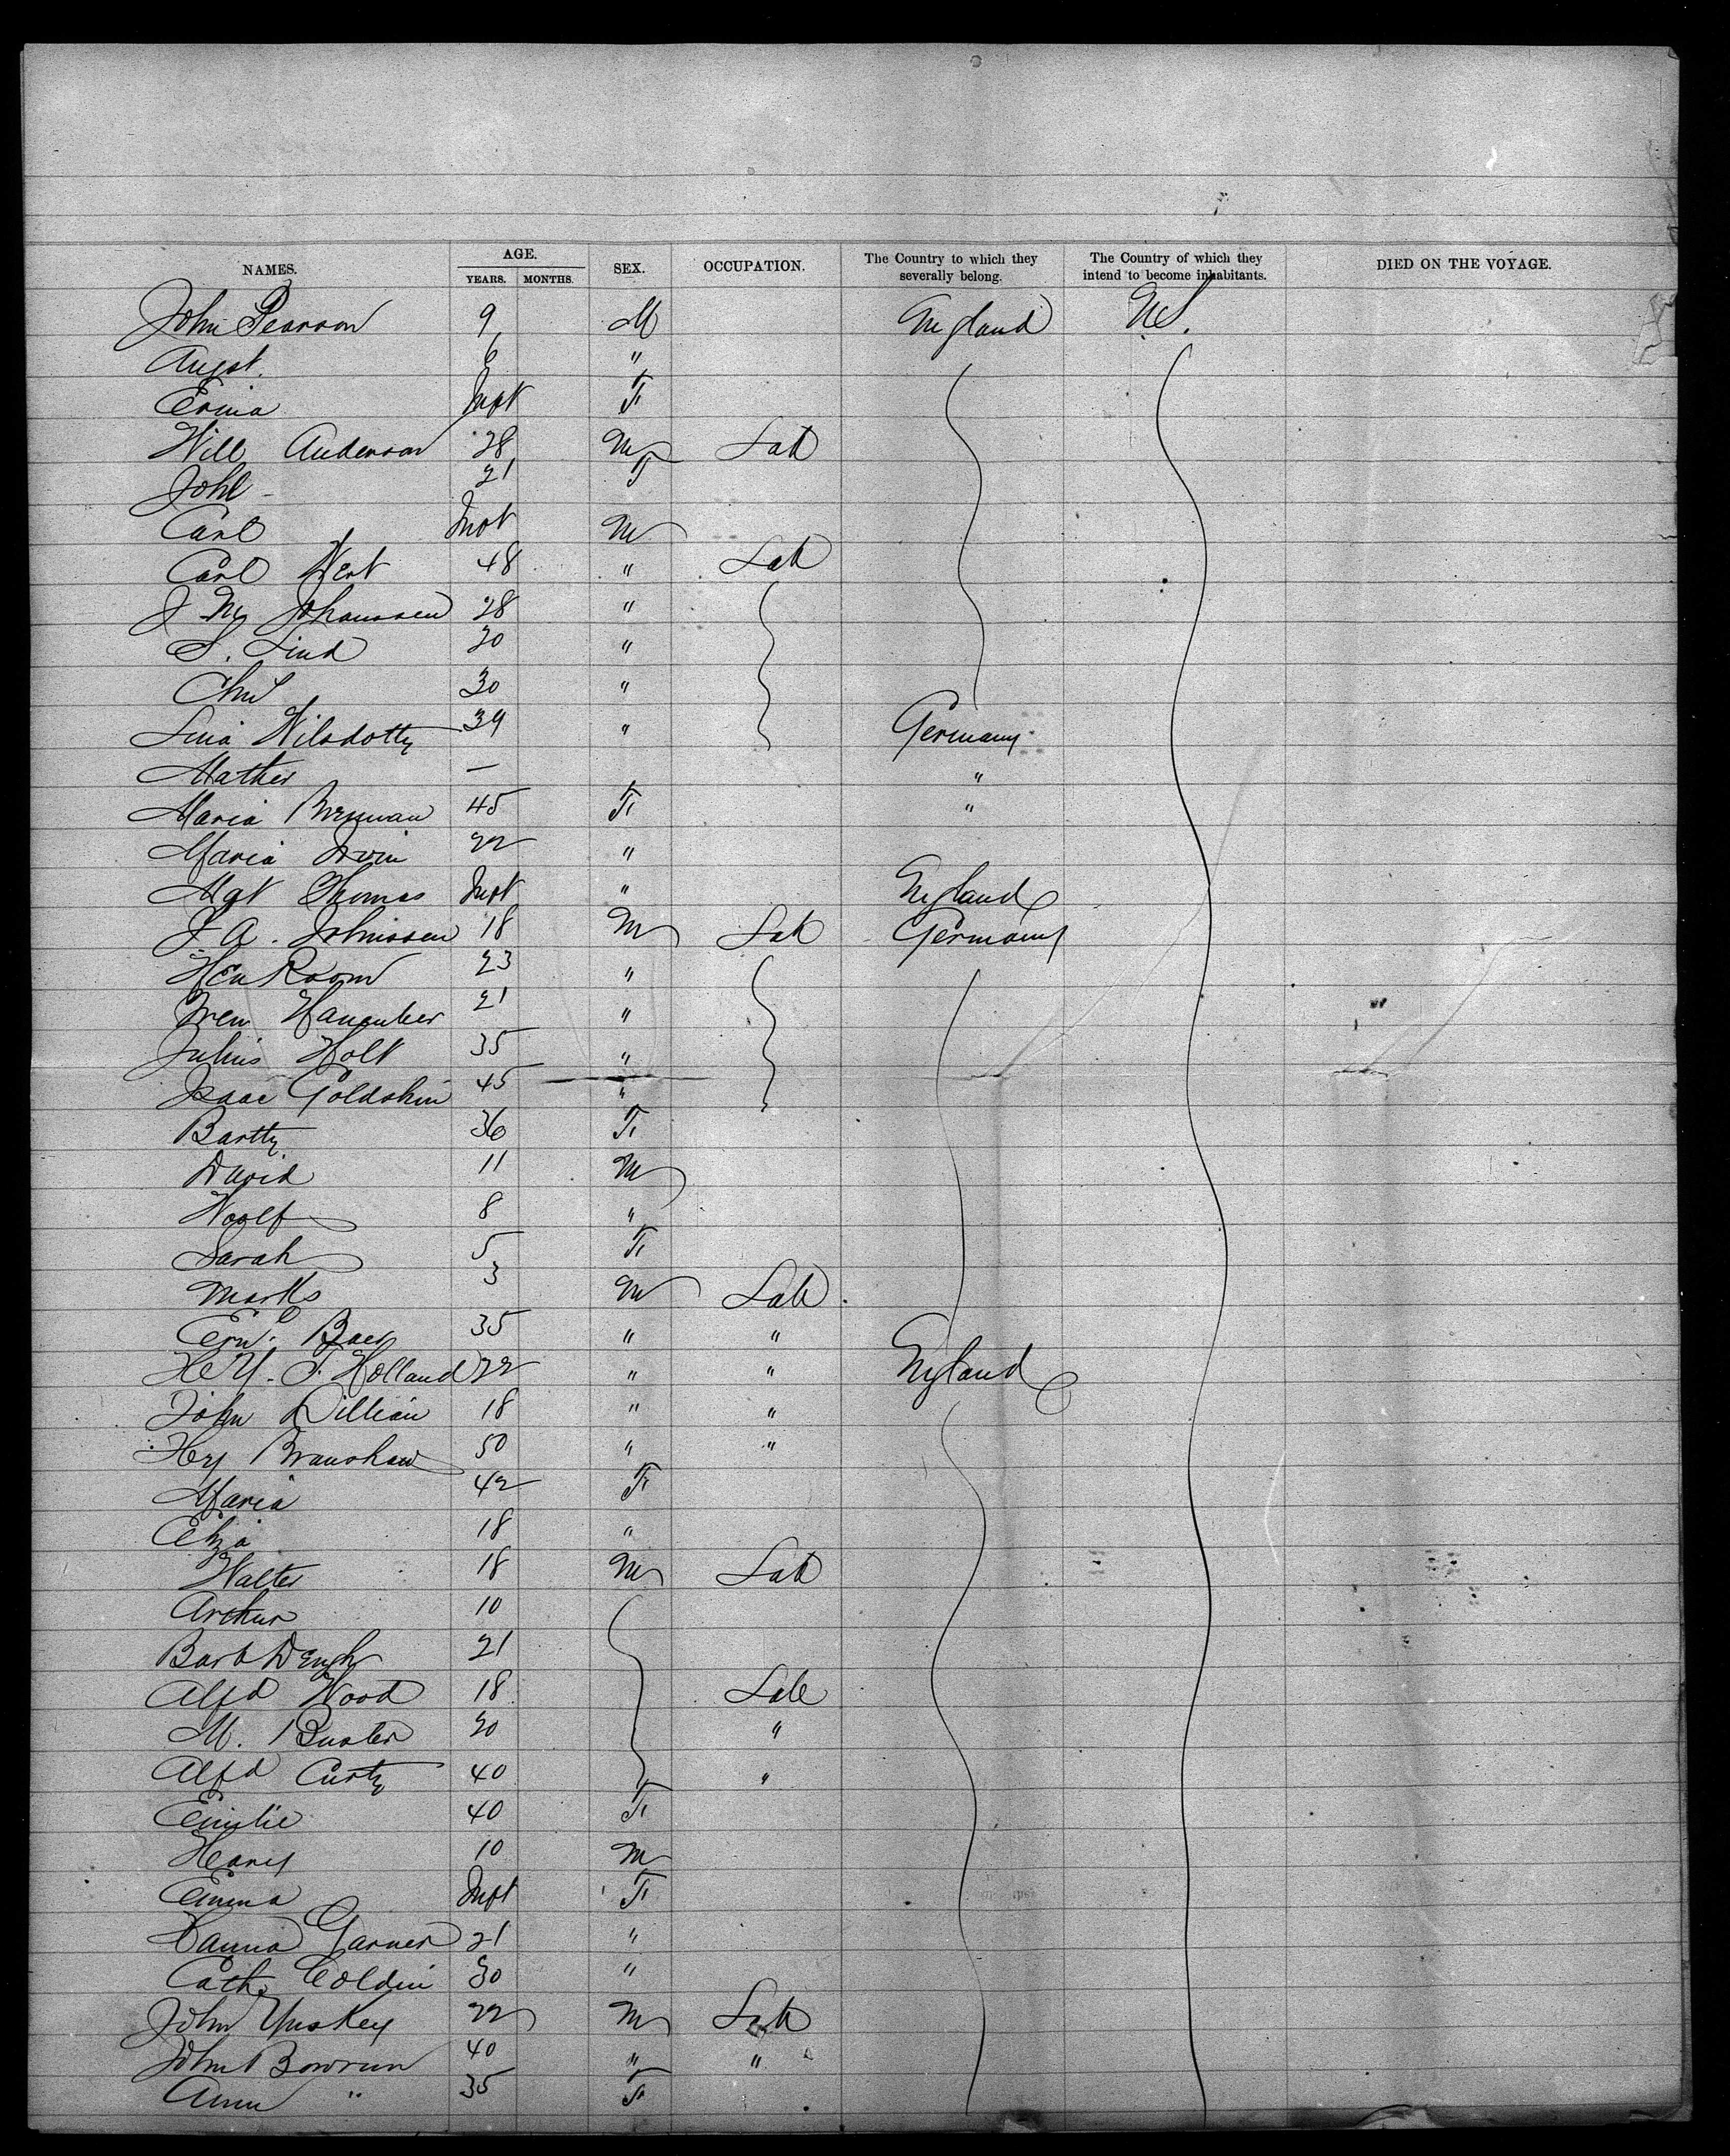 NAMES. AGE. YEARS. MONTHS. SEX. OCCUPATION. The Country to which they severally belong. The Country of which they intend to become inhabitants. DIED ON THE VOYAGE.
John Pearson 9 M England U.S.
Augst. 6 "
Erina Inft F
Will Anderson 28 M Lab
Johl - 21 F
Carl Inft M
Carl Wert 48 " Lab
J M Johanssen 28 "
S. Lind 20 "
Chrs 30 "
Lina Nilsdotty 39 " Germany
Mather — "
Maria Brennan 45 F "
Maria Irvin 22 "
Mgt Thomas Inft " England
J A. Johnssen 18 M Lab Germany
Hen Room 23 "
21 "
Julius Holt 35 "
Isaac Goldshin 45 "
Bartty 36 F
David 11 M
Woolf 8 "
Sarah 5 F
Marks 3 M Lab
Baer 35 " "
Hey. F. Holland 22 " " England
John Dillian 18 " "
Hey Branshaw 50 " "
Maria 42 F
Eliza 18 "
Walter 18 M Lab
Arthur 10
Barb 21
Alfd Wood 18 Lab
M. Buster 20 "
Alfd Curty 40 "
Emilie 40 F
Henry 10 M
Emma Inft F
Hanna Garner 21 "
Cath. Coldin 30 "
John Yuskey 22 M Lab
John Bowrun 40 " "
Ann " 35 F